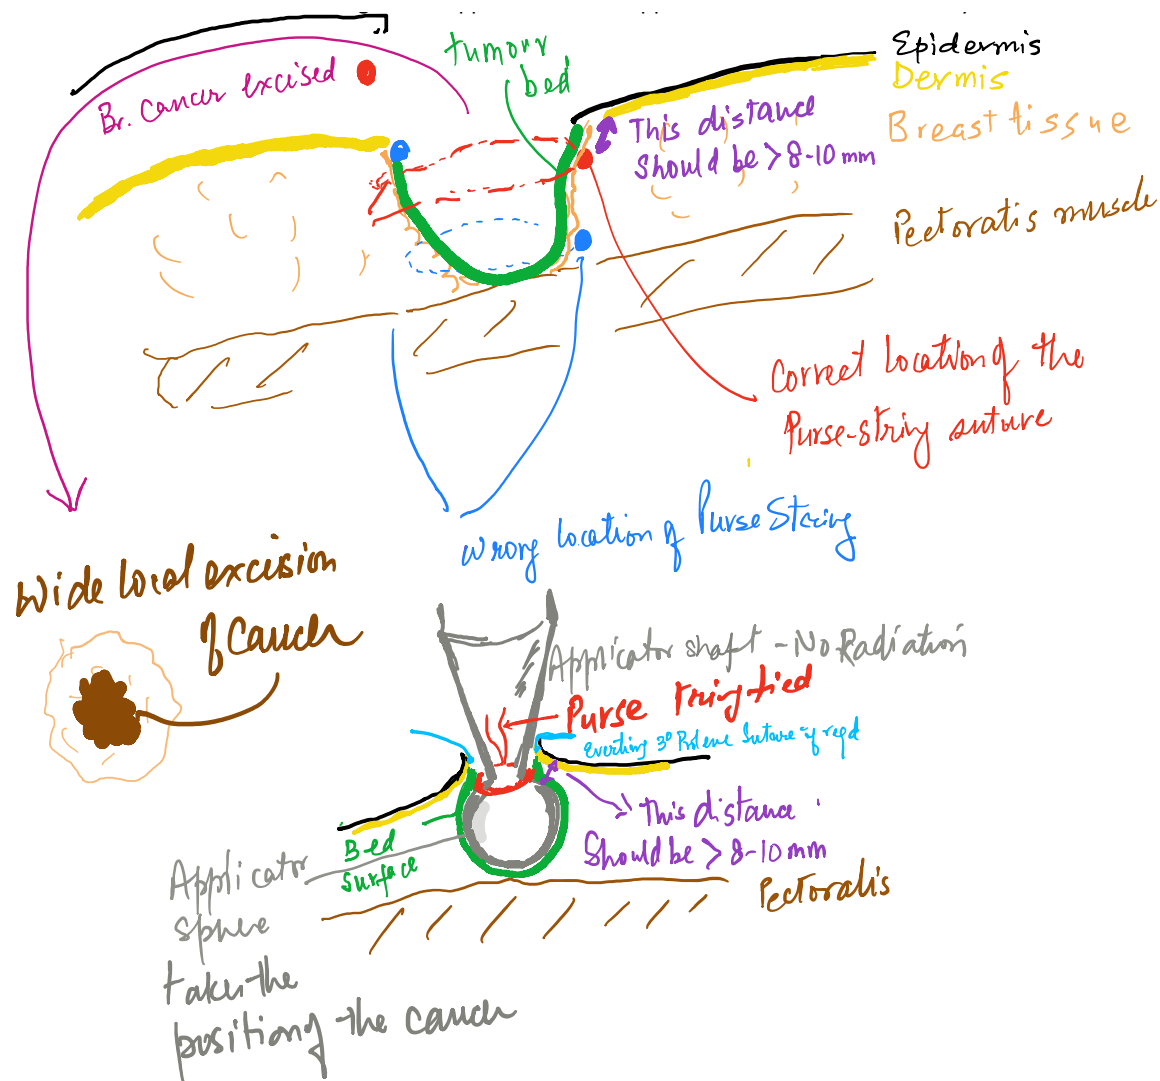 tumour
bed
Br. Cancer excised
Epidermis
Dermis
Breast tissue
This distance
Should be > 8-10 mm
Pectoratis muscle
Correct location of the
Purse-string suture
Wrong location of Purse String
Wide local excision
of Cancer
Applicator shaft - No Radiation
Purse tring tied
Everting 3º Prolene Suture if reqd
This distance
Should be > 8-10 mm
Bed
surface
Pectoralis
Applicator
sphere
takes the
position of the cancer